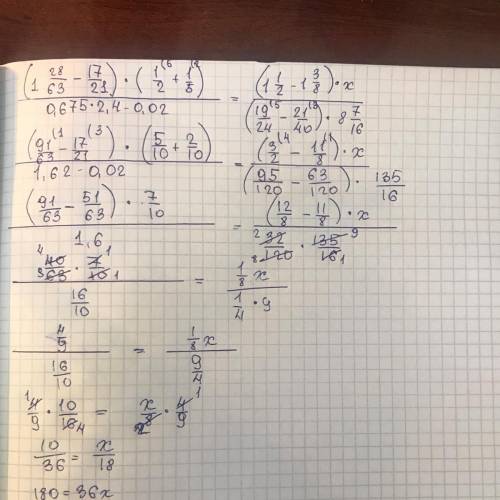 (1 28/63 - 17/21) · (1/2 (5 + 1/5 (2) / 0,675·2,4-0,02 = (1 1/2 - 1 3/8) · x / (19/24 (5 - 21/40 (3) · 8 7/16
(91/63 (1 - 17/21 (3) · (5/10 + 2/10) / 1,62-0,02 = (3/2 (4 - 11/8 (1) · x / (95/120 - 63/120) · 135/16
(91/63 - 51/63) · 7/10 / 1,6 = (12/8 - 11/8) · x / 32/120 · 135/16
40/63 · 7/10 / 16/10 = 1/8 x / 1/4 · 9
4/9 / 16/10 = 1/8 x / 9/4
4/9 · 10/16 = x/8 · 4/9
10/36 = x/18
180 = 36x